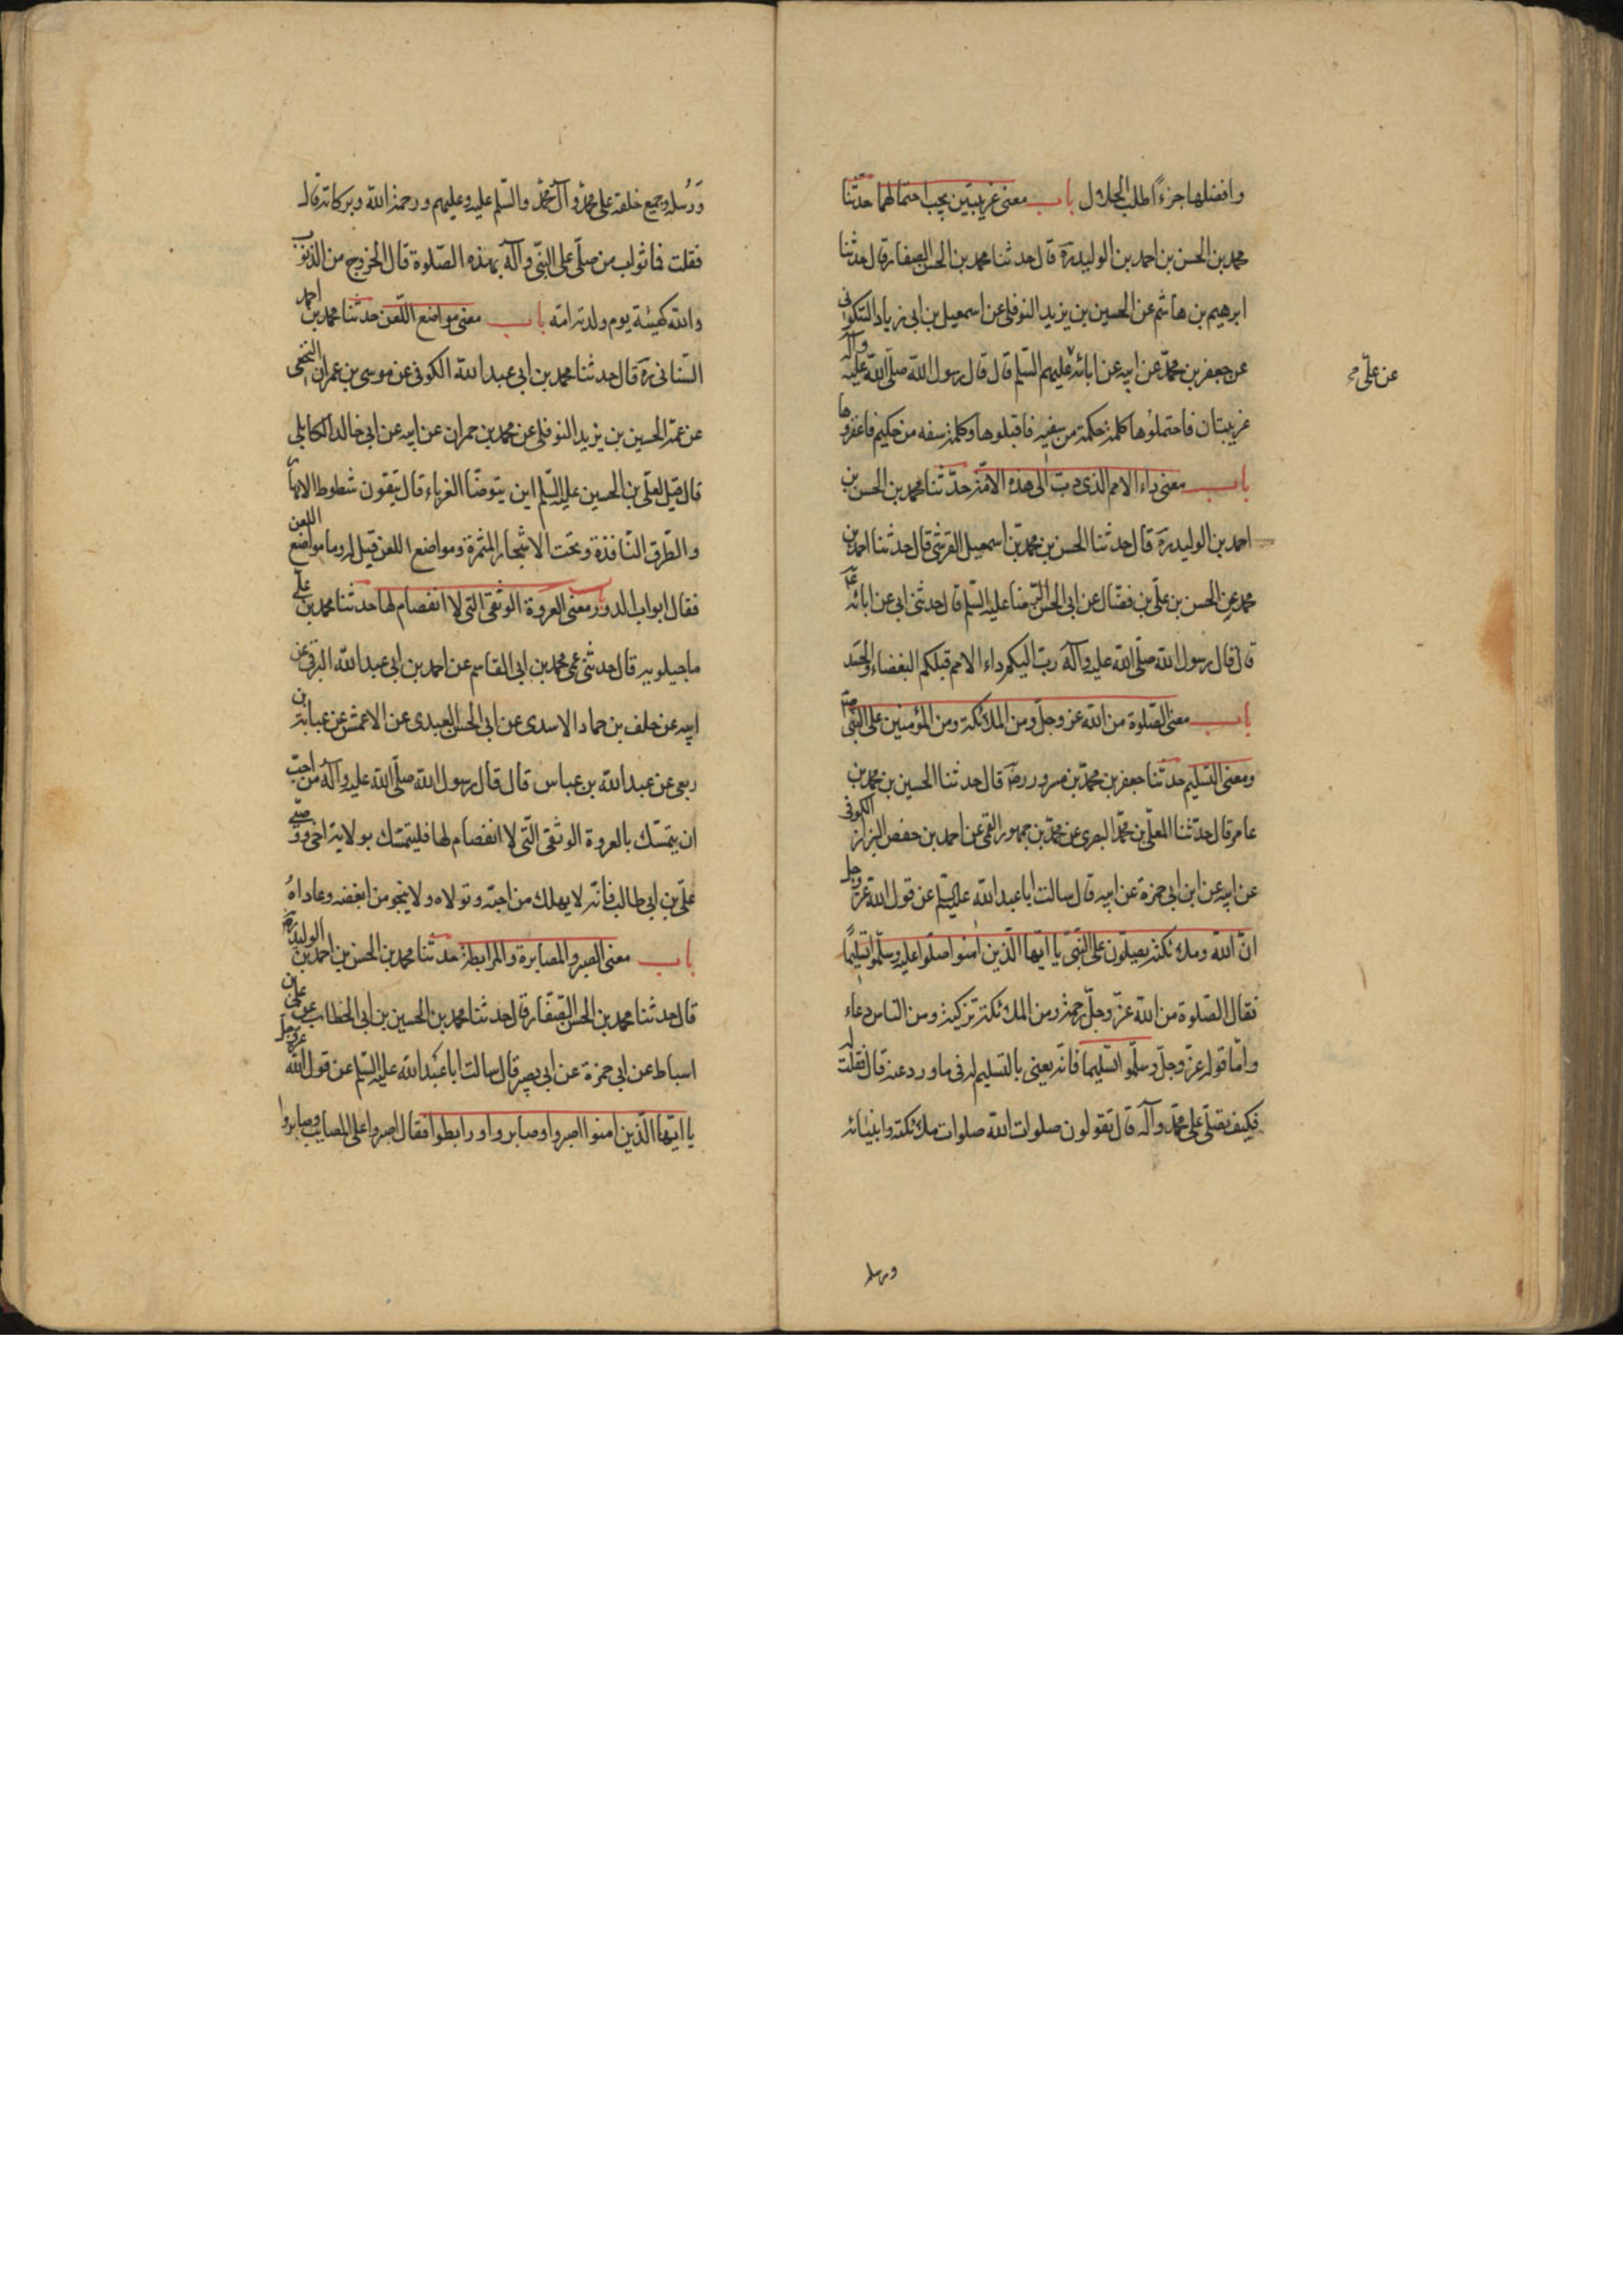 وافضلها جزءاً طلب الحلال باب معنى غريبتين يجب احتمالهما حدّثنا
محمد بن الحسن بن احمد بن الوليد ره قال حدثنا محمد بن الحسن الصفار قال حدثنا
ابرهيم بن هاشم عن الحسين بن يزيد النوفلي عن اسمعيل بن ابى زياد السّكونى
عن جعفر بن محمّد عن ابيه عن ابائه عليهم السّلم قال قال رسول الله صلّى الله عليه وآله
عن علىّ
غريبتان فاحتملوها كلمة حكمة من سفيه فاقبلوها وكلمة سفه من حكيم فاغفروها
باب معنى داء الامم الذى دبّ الى هذه الامّة حدّثنا محمد بن الحسن بن
احمد بن الوليد ره قال حدثنا الحسن بن محمد بن اسمعيل القرشى قال حدثنا احمد بن
محمد عن الحسن بن علّى بن فضّال عن ابى الحسن الرّضا عليه السّلم قال حدثنى ابى عن ابائه
قال قال رسول الله صلّى الله عليه وآله دبّ اليكم داء الامم قبلكم البغضاء والحسد
باب معنى الصّلوة من الله عز وجلّ ومن الملائكة ومن المؤمنين على النّبى
ومعنى التسليم حدثنا جعفر بن محمّد بن مسرور رض قال حدثنا الحسين بن محمد بن
عامر قال حدّثنا المعلّى بن محمّد البصرى عن محمّد بن جمهور القمى عن احمد بن حفص البزاز الكوفى
عن ابيه عن ابن ابى حمزة عن ابيه قال سالت ابا عبد الله عليه السّلم عن قول الله عزّ وجل
انّ الله وملائكته يصلّون على النّبىّ يا ايّها الّذين امنوا صلّوا عليه وسلّموا تسليمًا
فقال الصّلوة من الله عزّ وجلّ رحمة ومن الملائكة تزكية ومن النّاس دعاء
وامّا قوله عزّ وجلّ وسلّموا تسليما فانّه يعنى بالتسليم له فى ما ورد عنه قال فقلت له
فكيف نصلّى على محمّد وآله قال تقولون صلوات الله صلوات ملائكته وانبيائه
ورسله
وَرُسله وجميع خلقه على محمّد وآل محمّد والسّلم عليه وعليهم ورحمة الله وبركاته قال
فقلت فما ثواب من صلّى على النبّى وآله بهذه الصّلوة قال الخروج من الذّنوب
والله كهيئة يوم ولدته امّه باب معنى مواضع اللّعن حدثنا محمد بن احمد
السّنانى ره قال حدثنا محمد بن ابى عبد الله الكوفى عن موسى بن عمران النخعى
عن عمّه الحسين بن يزيد النوفلى عن محمد بن حمران عن ابيه عن ابى خالد الكابلى
قال قيل لعلّى بن الحسين عليه السّلم اين يتوضّا الغرباء قال يتقون شطوط الانهار
والطّرق النّافذة وتحت الاشجار المثمرة ومواضع اللعن قيل له وما مواضع اللعن
فقال ابواب الدور باب معنى العروة الوثقى التى لا انفصام لها حدثنا محمد بن علّى
ماجيلويه قال حدثنى عمى محمد بن ابى القاسم عن احمد بن ابى عبد الله البرقى عن
ابيه عن خلف بن حماد الاسدى عن ابى الحسن العبدى عن الاعمش عن عباية بن
ربعى عن عبد الله بن عباس قال قال رسول الله صلّى الله عليه وآله من احبّ
ان يتمسّك بالعروة الوثقى الّتى لا انفصام لها فليتمسّك بولاية اخى ووصيّى
علّى بن ابى طالب فانّه لا يهلك من احبّه وتولاه ولا ينجو من ابغضه وعاداهُ
باب معنى الصبر والمصابرة والمرابطة حدثنا محمد بن الحسن بن احمد بن الوليد ره
قال حدثنا محمد بن الحسن الصّفّار قال حدثنا محمد بن الحسين بن ابى الخطاب عن على بن
اسباط عن ابى حمزة عن ابى بصير قال سالت ابا عبد الله عليه السّلم عن قول الله عزّ وجلّ
يا ايّها الّذين امنوا اصبروا وصابروا ورابطوا فقال اصبروا على المصايب وصابروا